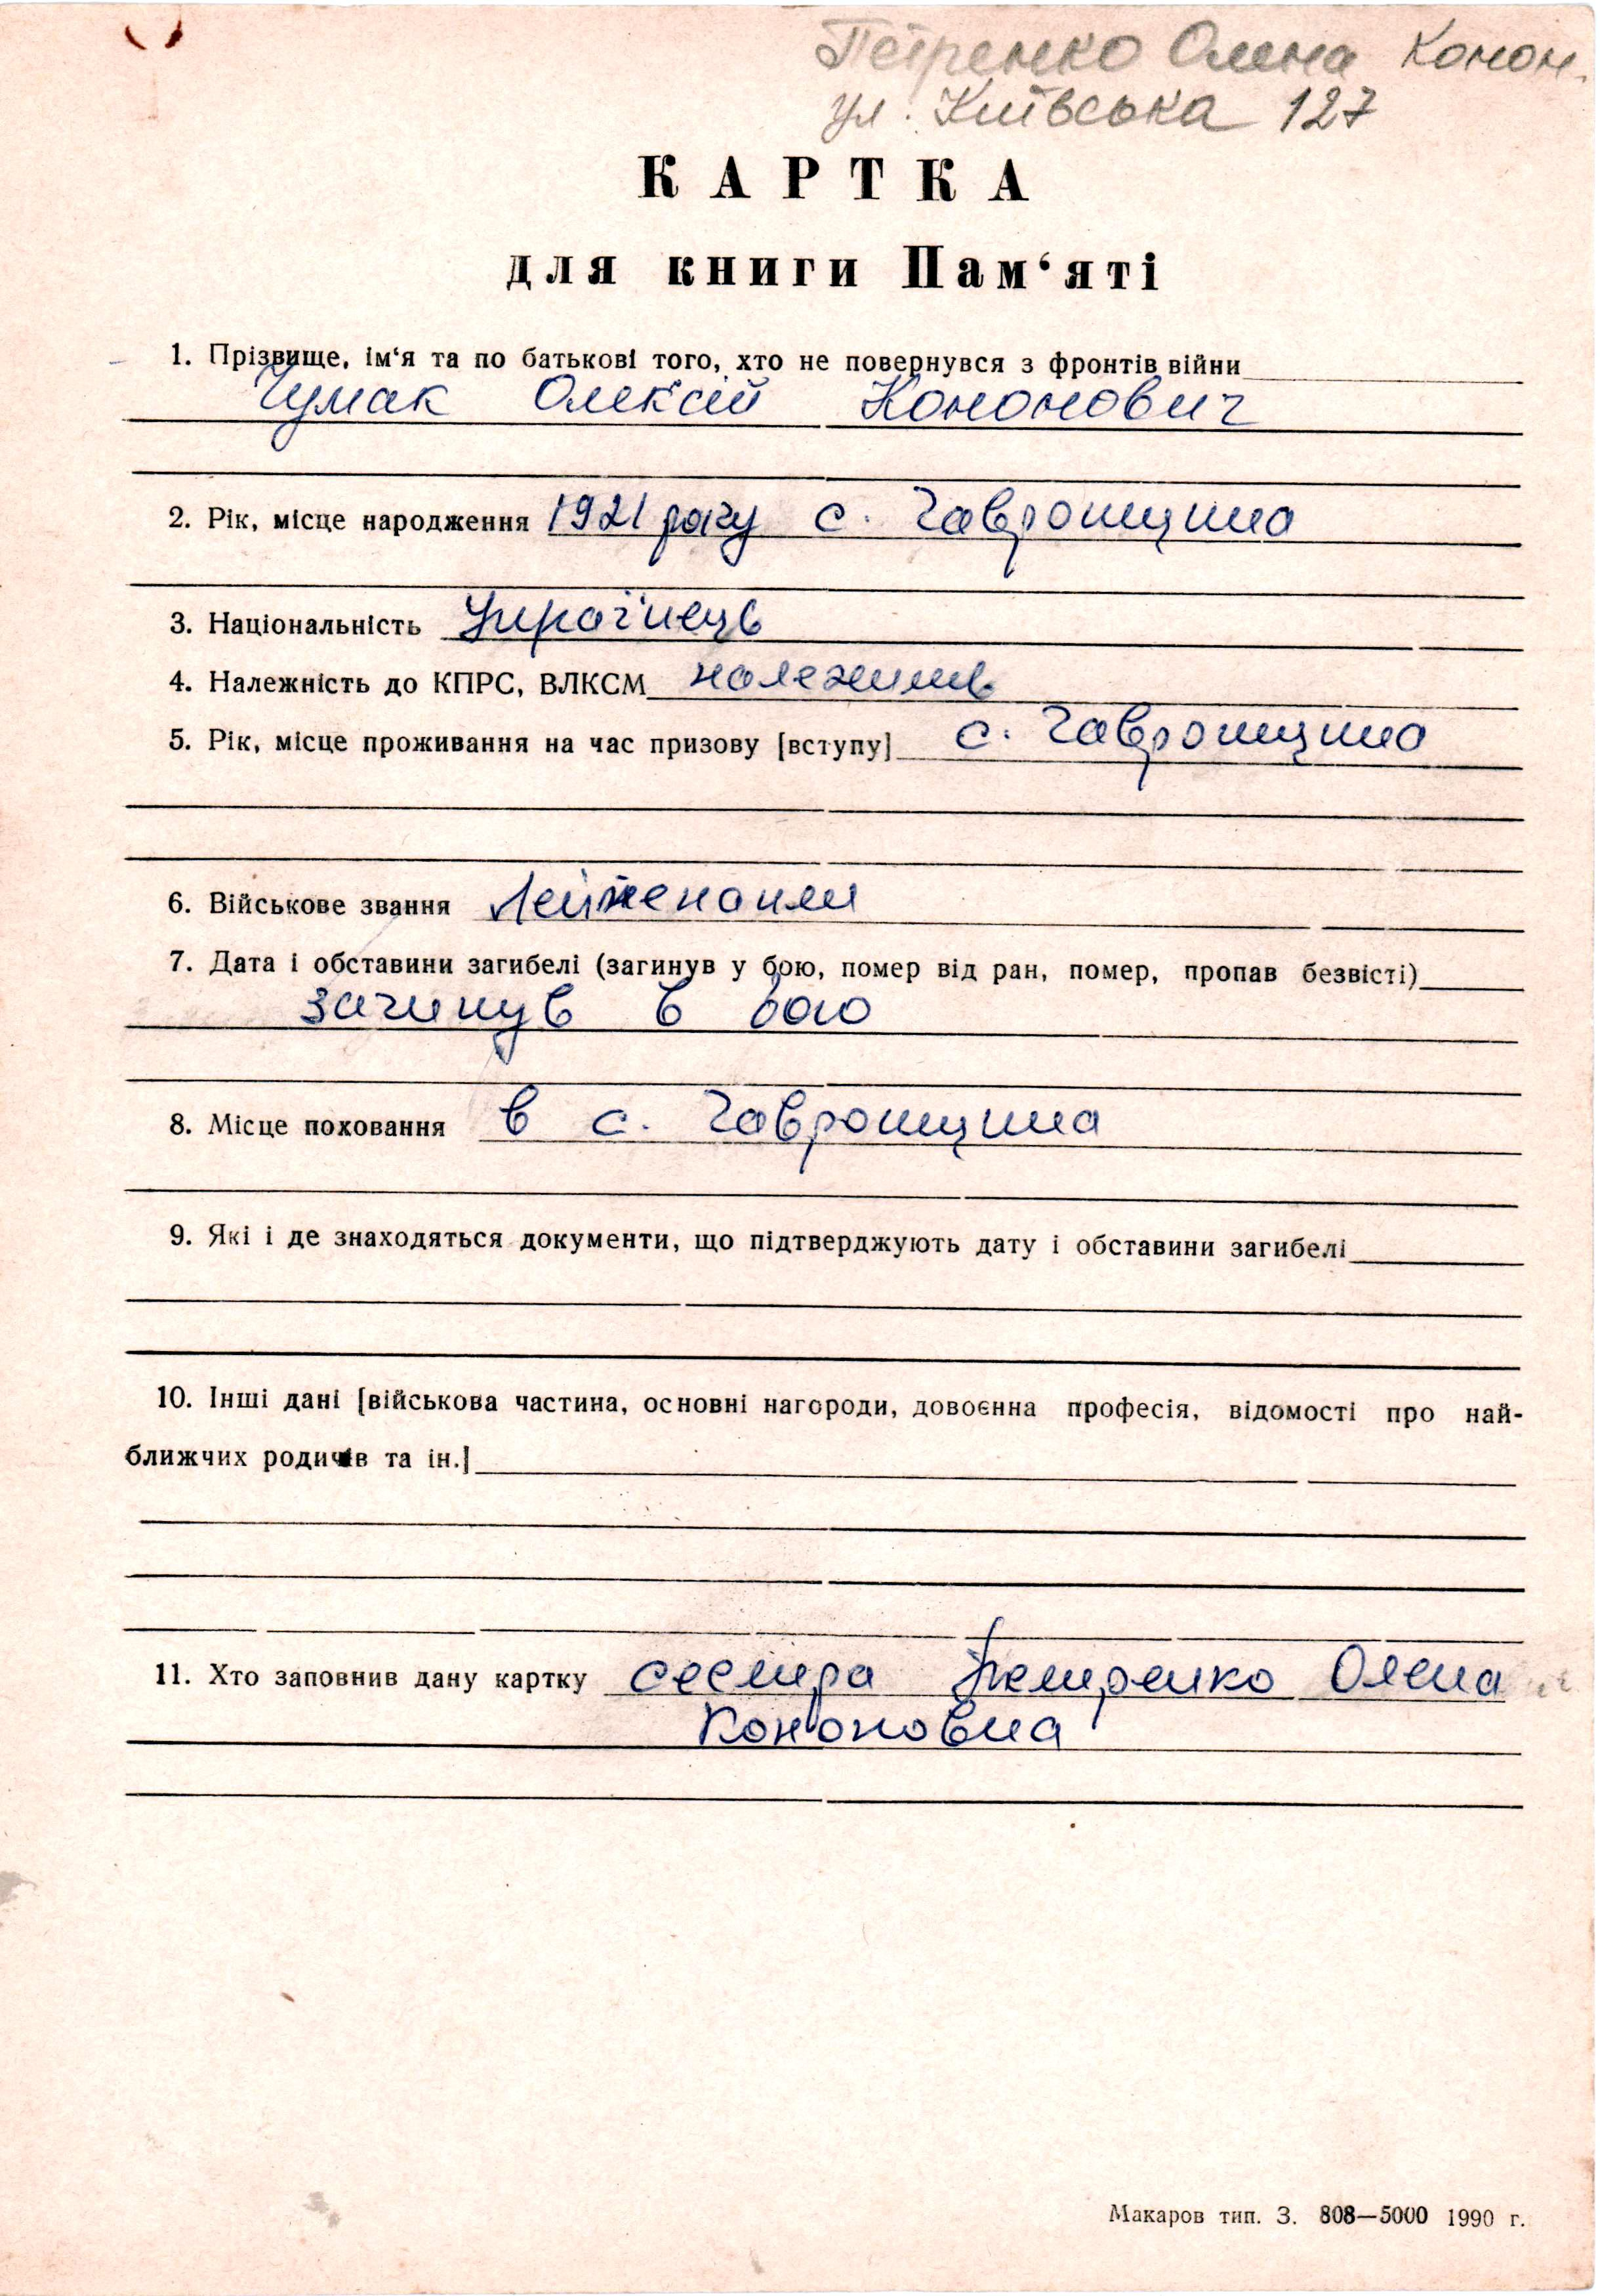 Петренко Олена Конон.
ул. Київська 127
КАРТКА
для книги Пам‘яті
1. Прізвище, ім‘я та по батькові того, хто не повернувся з фронтів війни
Чумак Олексій Кононович
2. Рік, місце народження 1921 року с. Гавронщина
3. Національність Українець
4. Належність до КПРС, ВЛКСМ належив
5. Рік, місце проживання на час призову [вступу] с. Гавронщина
6. Військове звання Лейтенант
7. Дата і обставини загибелі (загинув у бою, помер від ран, помер, пропав безвісті)
загинув в бою
8. Місце поховання в с. Гавронщина
9. Які і де знаходяться документи, що підтверджують дату і обставини загибелі
10. Інші дані [військова частина, основні нагороди, довоєнна професія, відомості про най-
ближчих родичів та ін.]
11. Хто заповнив дану картку сестра Петренко Олена
Кононовна
Макаров тип. З. 808—5000 1990 г.